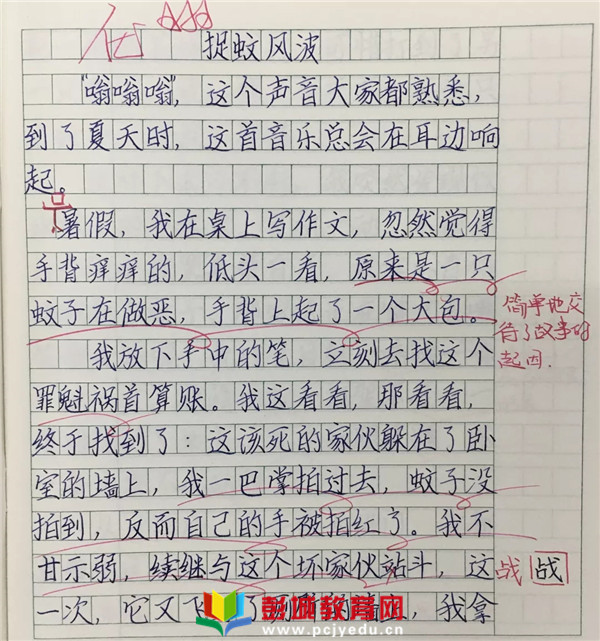 优
捉蚊风波
“嗡嗡嗡”，这个声音大家都熟悉，
到了夏天时，这首音乐总会在耳边响
起。
暑假，我在桌上写作文，忽然觉得
手背痒痒的，低头一看，原来是一只
蚊子在做恶，手背上起了一个大包。
简单地交
待了故事的
起因.
我放下手中的笔，立刻去找这个
罪魁祸首算账。我这看看，那看看，
终于找到了：这该死的家伙躲在了卧
室的墙上，我一巴掌拍过去，蚊子没
拍到，反而自己的手被拍红了。我不
甘示弱，续继与这个坏家伙站斗，这
战 战
一次，它又飞 墙上，我拿
彭城教育网
www.pcjyedu.cn